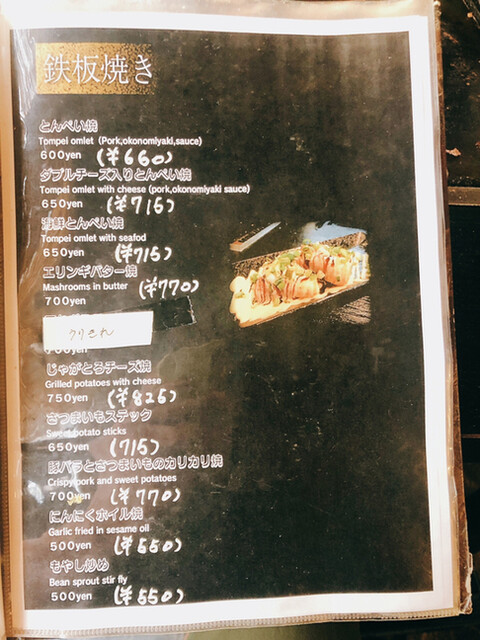 鉄板焼き
とんぺい焼
Tompei omlet (Pork,okonomiyaki,sauce)
600yen (¥660)
ダブルチーズ入りとんぺい焼
Tompei omlet with cheese (pork,okonomiyaki sauce)
650yen (¥715)
海鮮とんぺい焼
Tompei omlet with seafod
650yen (¥715)
エリンギバター焼
Mashrooms in butter (¥770)
700yen
ウリきれ
じゃがとろチーズ焼
Grilled potatoes with cheese
750yen (¥825)
さつまいもステック
Sweet potato sticks
650yen (715)
豚バラとさつまいものカリカリ焼
Crispy pork and sweet potatoes
700yen (¥770)
にんにくホイル焼
Garlic fried in sesame oil
500yen (¥550)
もやし炒め
Bean sprout stir fly
500yen (¥550)